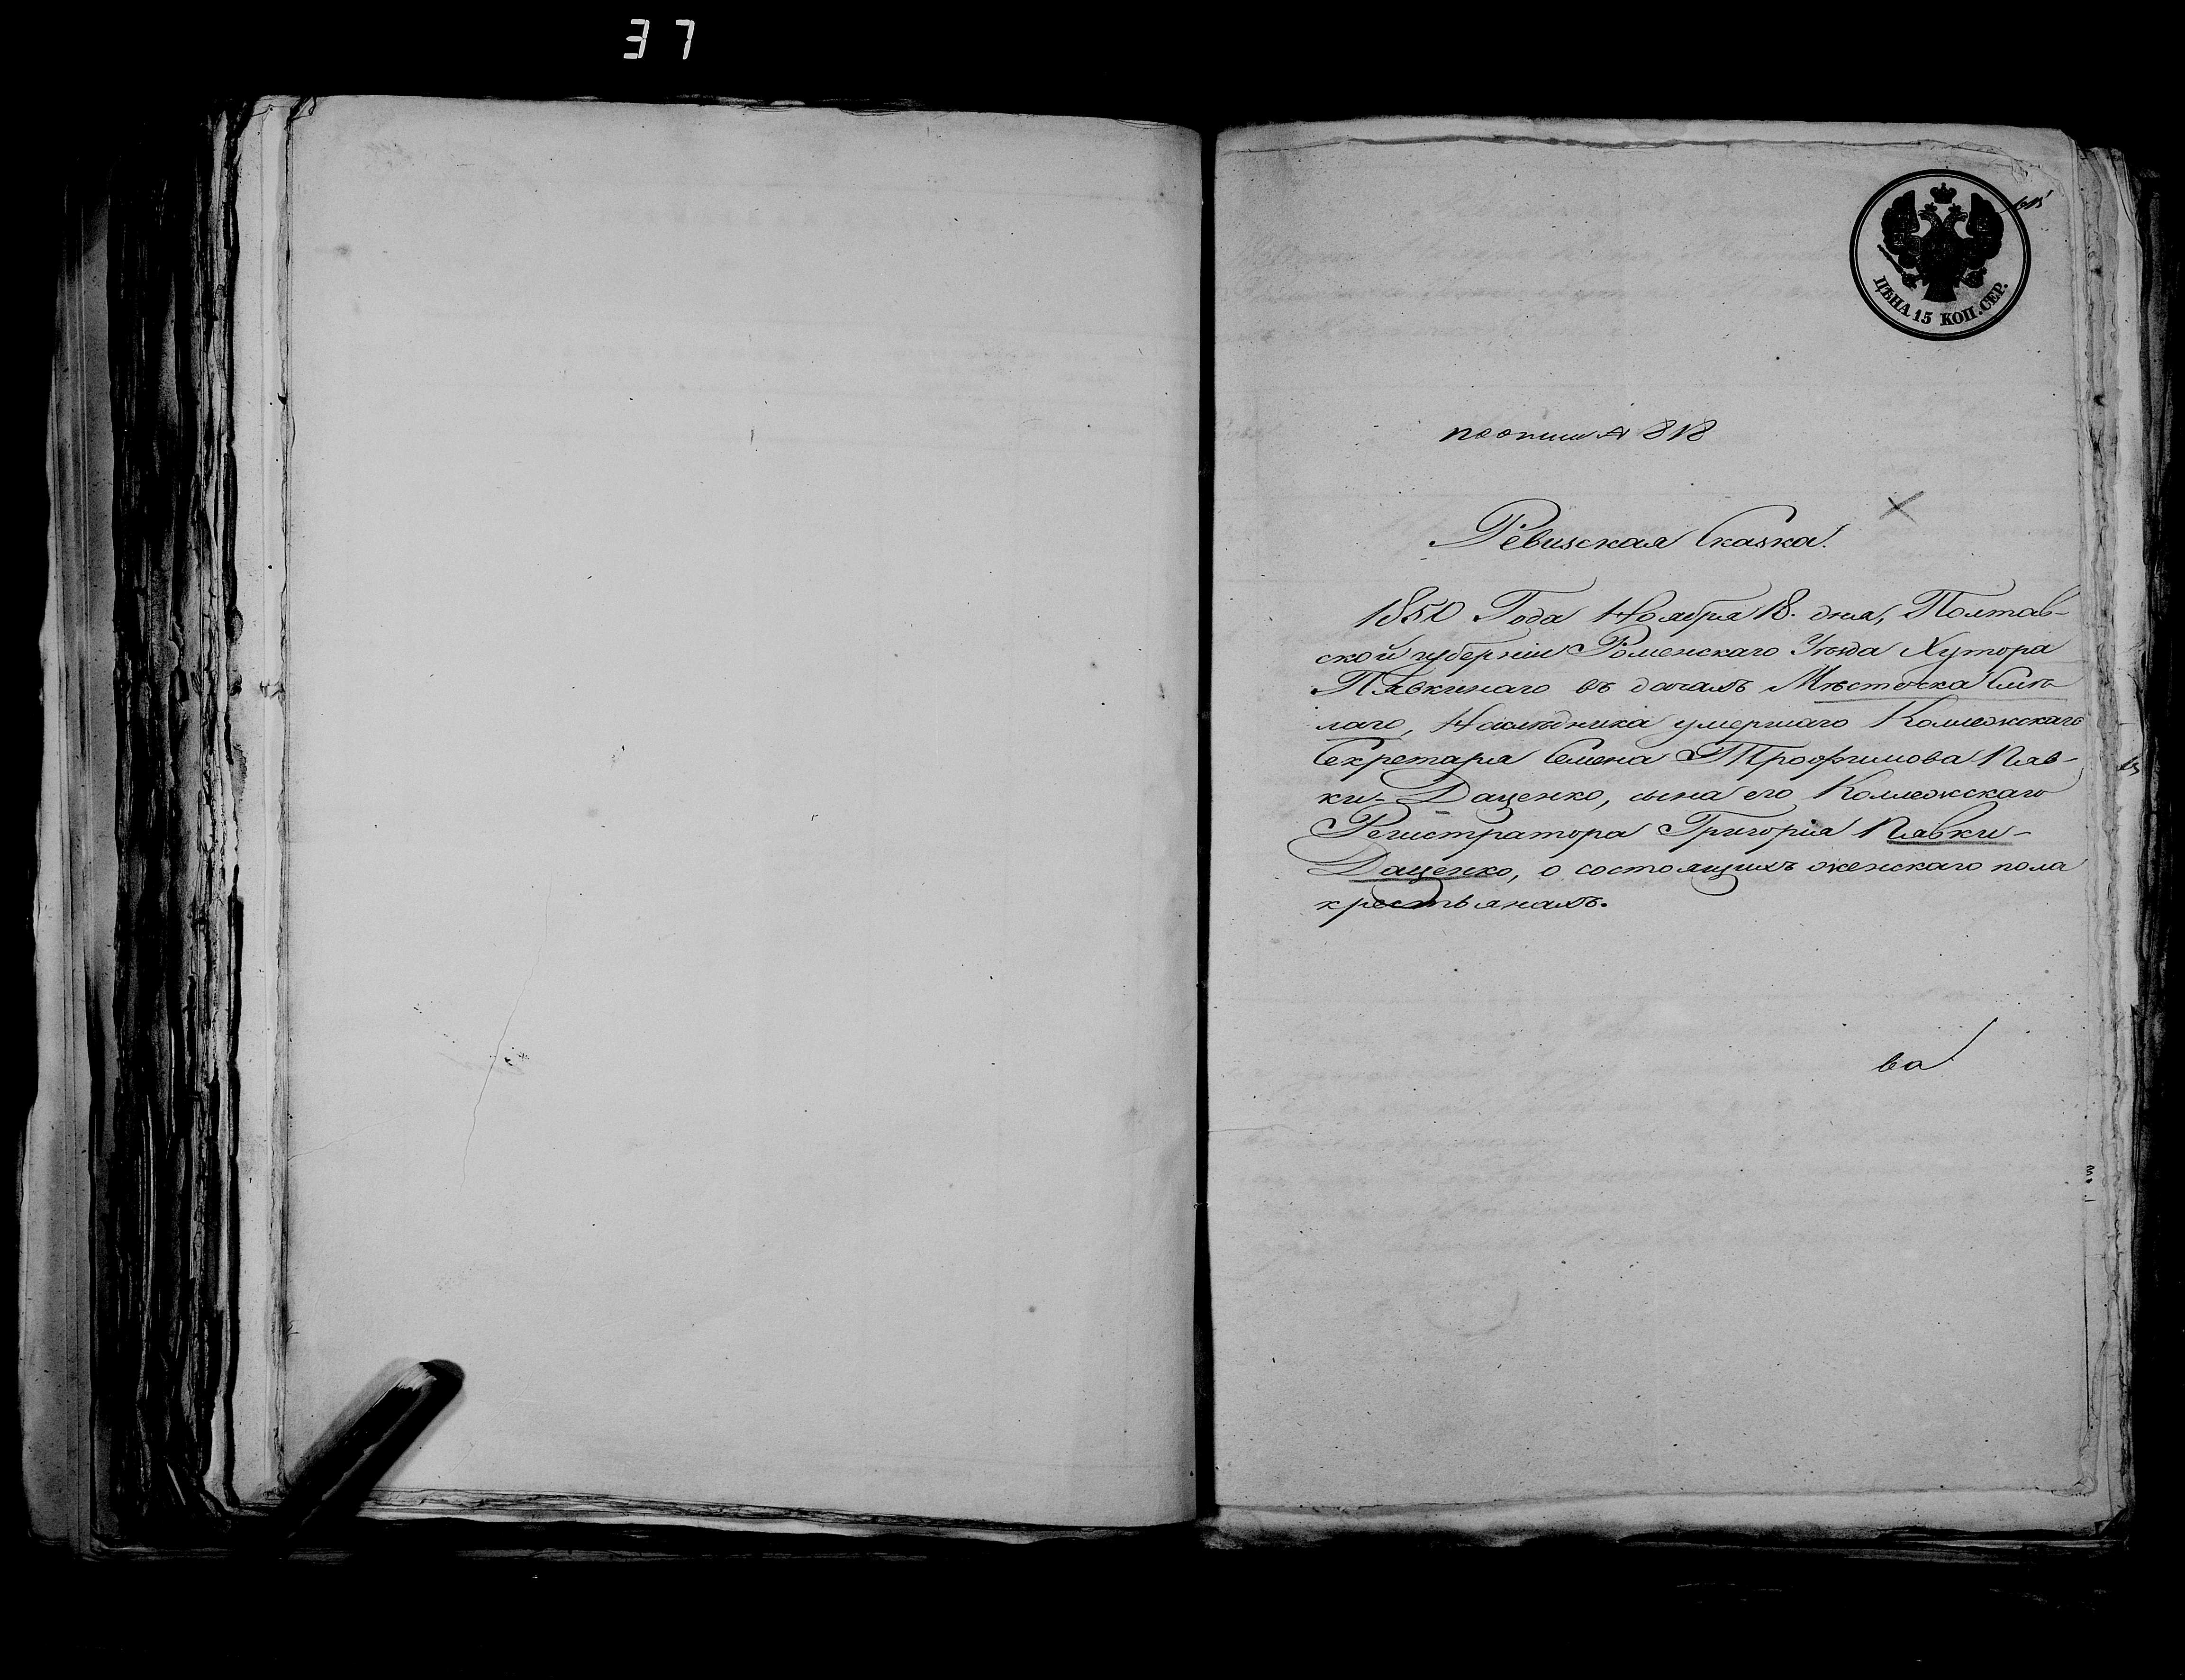 37
ЦѢНА 15 КОП. СЕР.
по описи № 818
Ревизская Сказка.
1850 Года Ноября 18. дня, Полтав-
ской губерніи Роменскаго Уѣзда Хутора
Плавкинаго въ дачахъ Мѣстечка Смѣ-
лаго, Наслѣдника умершаго Коллежскаго
Секретаря Семена Трофимова Плав-
ки-Даценко, сына его Коллежскаго
Регистратора Григорія Плавки-
Даценко, о состоящихъ женскаго пола
крестьянахъ.
ва